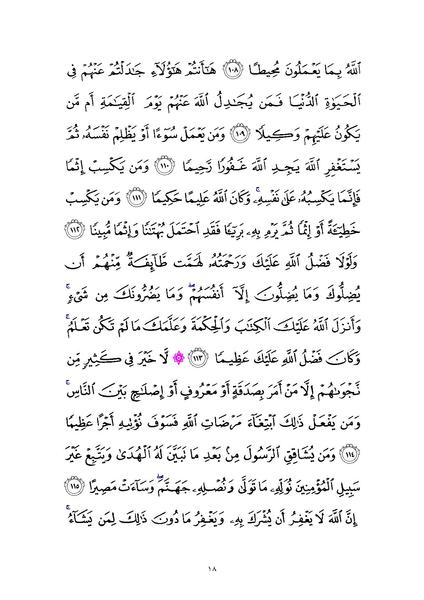 ٱللَّهُ بِمَا يَعْمَلُونَ مُحِيطًا ۝١٠٨ هَٰٓأَنتُمْ هَٰٓؤُلَآءِ جَٰدَلْتُمْ عَنْهُمْ فِى
ٱلْحَيَوٰةِ ٱلدُّنْيَا فَمَن يُجَٰدِلُ ٱللَّهَ عَنْهُمْ يَوْمَ ٱلْقِيَٰمَةِ أَم مَّن
يَكُونُ عَلَيْهِمْ وَكِيلًا ۝١٠٩ وَمَن يَعْمَلْ سُوٓءًا أَوْ يَظْلِمْ نَفْسَهُۥ ثُمَّ
يَسْتَغْفِرِ ٱللَّهَ يَجِدِ ٱللَّهَ غَفُورًا رَّحِيمًا ۝١١٠ وَمَن يَكْسِبْ إِثْمًا
فَإِنَّمَا يَكْسِبُهُۥ عَلَىٰ نَفْسِهِۦ ۚ وَكَانَ ٱللَّهُ عَلِيمًا حَكِيمًا ۝١١١ وَمَن يَكْسِبْ
خَطِيٓـَٔةً أَوْ إِثْمًا ثُمَّ يَرْمِ بِهِۦ بَرِيٓـًٔا فَقَدِ ٱحْتَمَلَ بُهْتَٰنًا وَإِثْمًا مُّبِينًا ۝١١٢
وَلَوْلَا فَضْلُ ٱللَّهِ عَلَيْكَ وَرَحْمَتُهُۥ لَهَمَّت طَّآئِفَةٌ مِّنْهُمْ أَن
يُضِلُّوكَ وَمَا يُضِلُّونَ إِلَّآ أَنفُسَهُمْ ۖ وَمَا يَضُرُّونَكَ مِن شَىْءٍ ۚ
وَأَنزَلَ ٱللَّهُ عَلَيْكَ ٱلْكِتَٰبَ وَٱلْحِكْمَةَ وَعَلَّمَكَ مَا لَمْ تَكُن تَعْلَمُ ۚ
وَكَانَ فَضْلُ ٱللَّهِ عَلَيْكَ عَظِيمًا ۝١١٣ ۞ لَّا خَيْرَ فِى كَثِيرٍ مِّن
نَّجْوَىٰهُمْ إِلَّا مَنْ أَمَرَ بِصَدَقَةٍ أَوْ مَعْرُوفٍ أَوْ إِصْلَٰحٍۭ بَيْنَ ٱلنَّاسِ ۚ
وَمَن يَفْعَلْ ذَٰلِكَ ٱبْتِغَآءَ مَرْضَاتِ ٱللَّهِ فَسَوْفَ نُؤْتِيهِ أَجْرًا عَظِيمًا
۝١١٤ وَمَن يُشَاقِقِ ٱلرَّسُولَ مِنۢ بَعْدِ مَا تَبَيَّنَ لَهُ ٱلْهُدَىٰ وَيَتَّبِعْ غَيْرَ
سَبِيلِ ٱلْمُؤْمِنِينَ نُوَلِّهِۦ مَا تَوَلَّىٰ وَنُصْلِهِۦ جَهَنَّمَ ۖ وَسَآءَتْ مَصِيرًا ۝١١٥
إِنَّ ٱللَّهَ لَا يَغْفِرُ أَن يُشْرَكَ بِهِۦ وَيَغْفِرُ مَا دُونَ ذَٰلِكَ لِمَن يَشَآءُ ۚ
١٨